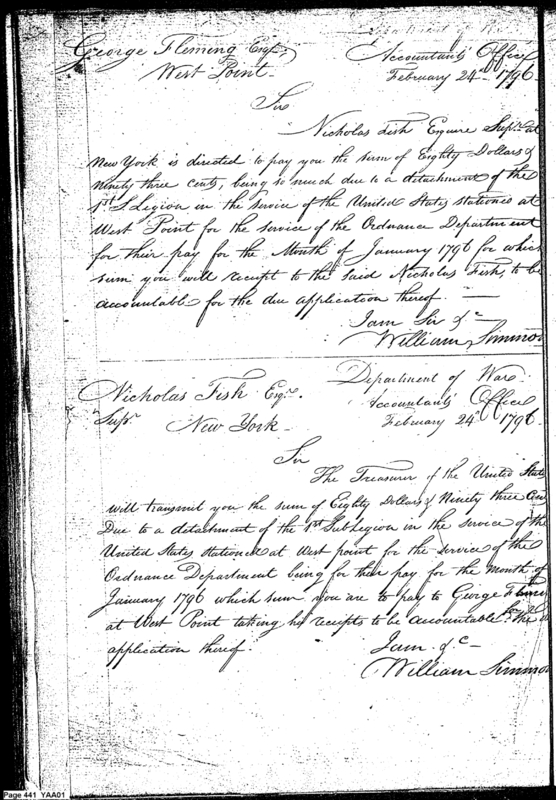 Department of War
George Fleming Esqr.
Accountants Office
West Point
February 24th 1796
Sir
Nicholas Fish Esquire Supr. at
New York is directed to pay you the sum of Eighty Dollars &
ninety three cents, being so much due to a detachment of the
1st S Legion in the service of the United States stationed at
West Point for the service of the Ordnance Department
for their pay for the Month of January 1796 for which
sum you will receipt to the said Nicholas Fish, to be
accountable for the due application thereof
I am Sir &c
William Simmon
Department of War
Nicholas Fish Esqr.
Accountants Office
Supr.
New York
February 24th 1796
Sir
The Treasurer of the United State
will transmit you the sum of Eighty Dollars & Ninety three Cen
Due to a detachment of the 1st Sub Legion in the service of the
United States stationed at West point for the service of the
Ordnance Department being for their pay for the month of
January 1796 which sum you are to pay to George Flemin
at West Point taking his receipts to be accountable for the
application thereof.
I am &c
William Simmon
Page 441 YAA01